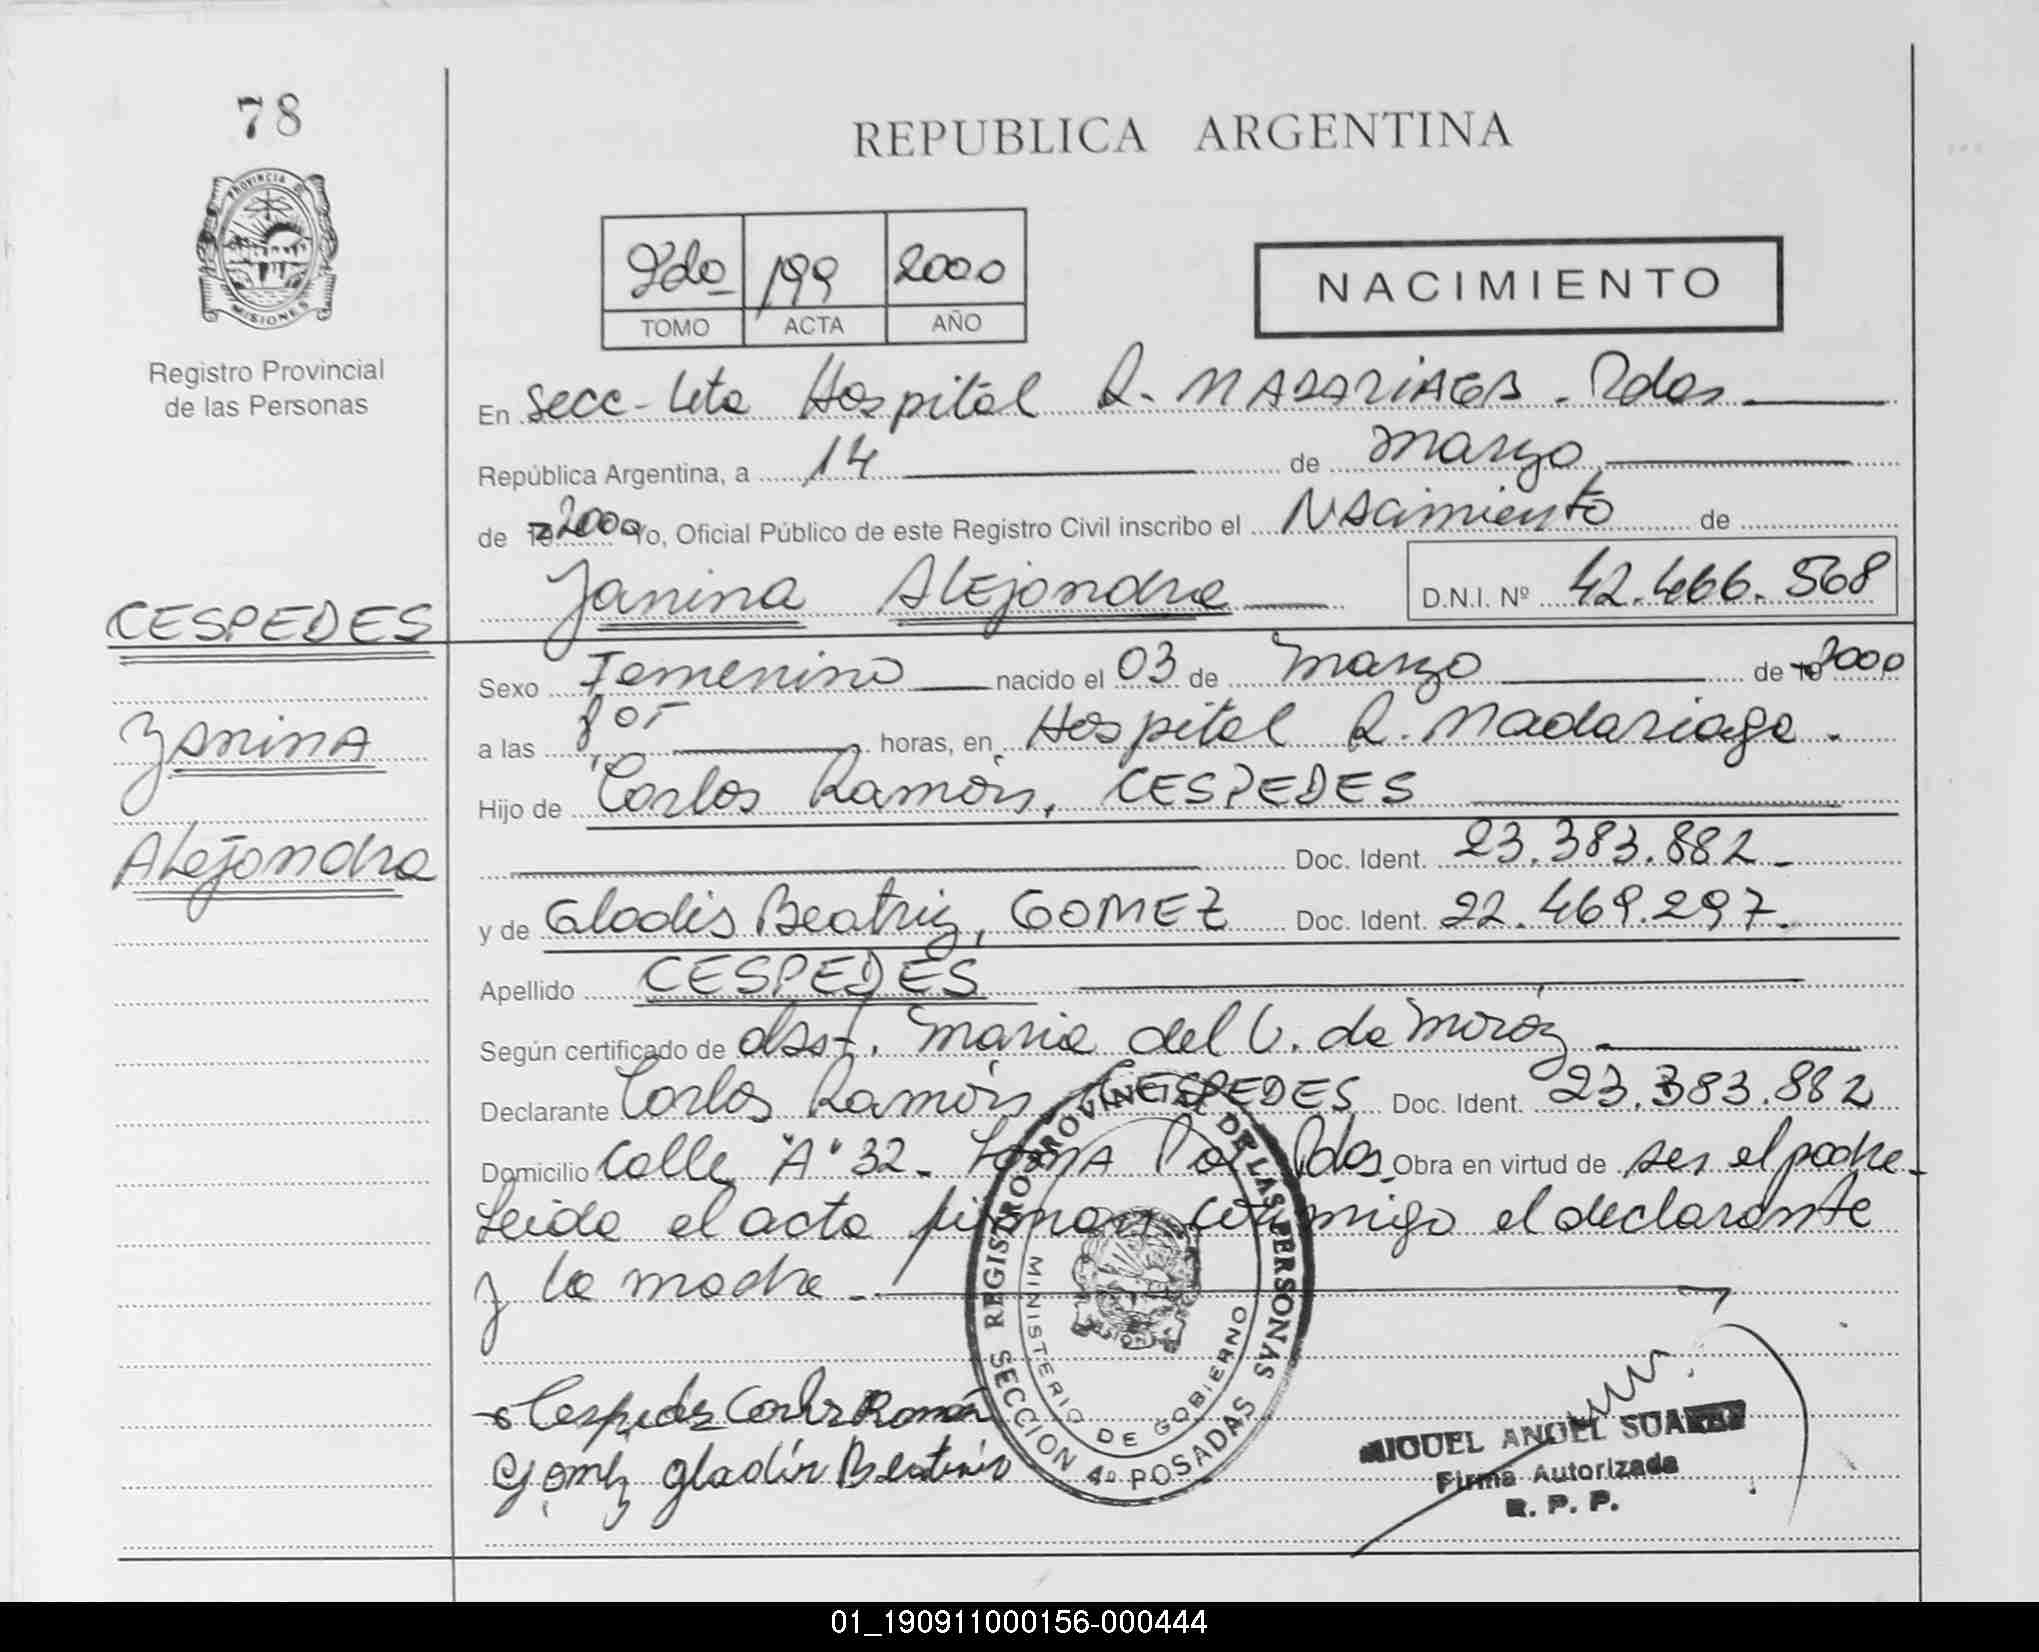 78
PROVINCIA DE
MISIONES
Registro Provincial
de las Personas
REPUBLICA ARGENTINA
2do 199 2000
TOMO ACTA AÑO
NACIMIENTO
En Secc- 4ta Hospital R. MADARIAGA. Pdas
República Argentina, a 14 de marzo
de 2000 Yo, Oficial Público de este Registro Civil inscribo el Nacimiento de
Janina Alejandra D.N.I. Nº 42.466.568
CESPEDES
Janina
Alejandra
Sexo Femenino nacido el 03 de marzo de 2000
a las horas, en Hospital R. Madariaga.
Hijo de Carlos Ramón, CESPEDES
Doc. Ident. 23.383.882-
y de Gladis Beatriz, GOMEZ Doc. Ident. 22.469.297.
Apellido CESPEDES
Según certificado de obst. Maria del C. de
Declarante Carlos Ramón CESPEDES Doc. Ident. 23.383.882
Domicilio Calle "A" 32- Pdas. Obra en virtud de ser el padre-
Leida el acta firman conmigo el declarante
y la madre.-
Cespedes Carlos Ramón
Gomez gladis Beatriz
REGISTRO PROVINCIAL DE LAS PERSONAS
SECCION 4ª POSADAS
MINISTERIO DE GOBIERNO
MIGUEL ANGEL SUAREZ
Firma Autorizada
R. P. P.
01_190911000156-000444